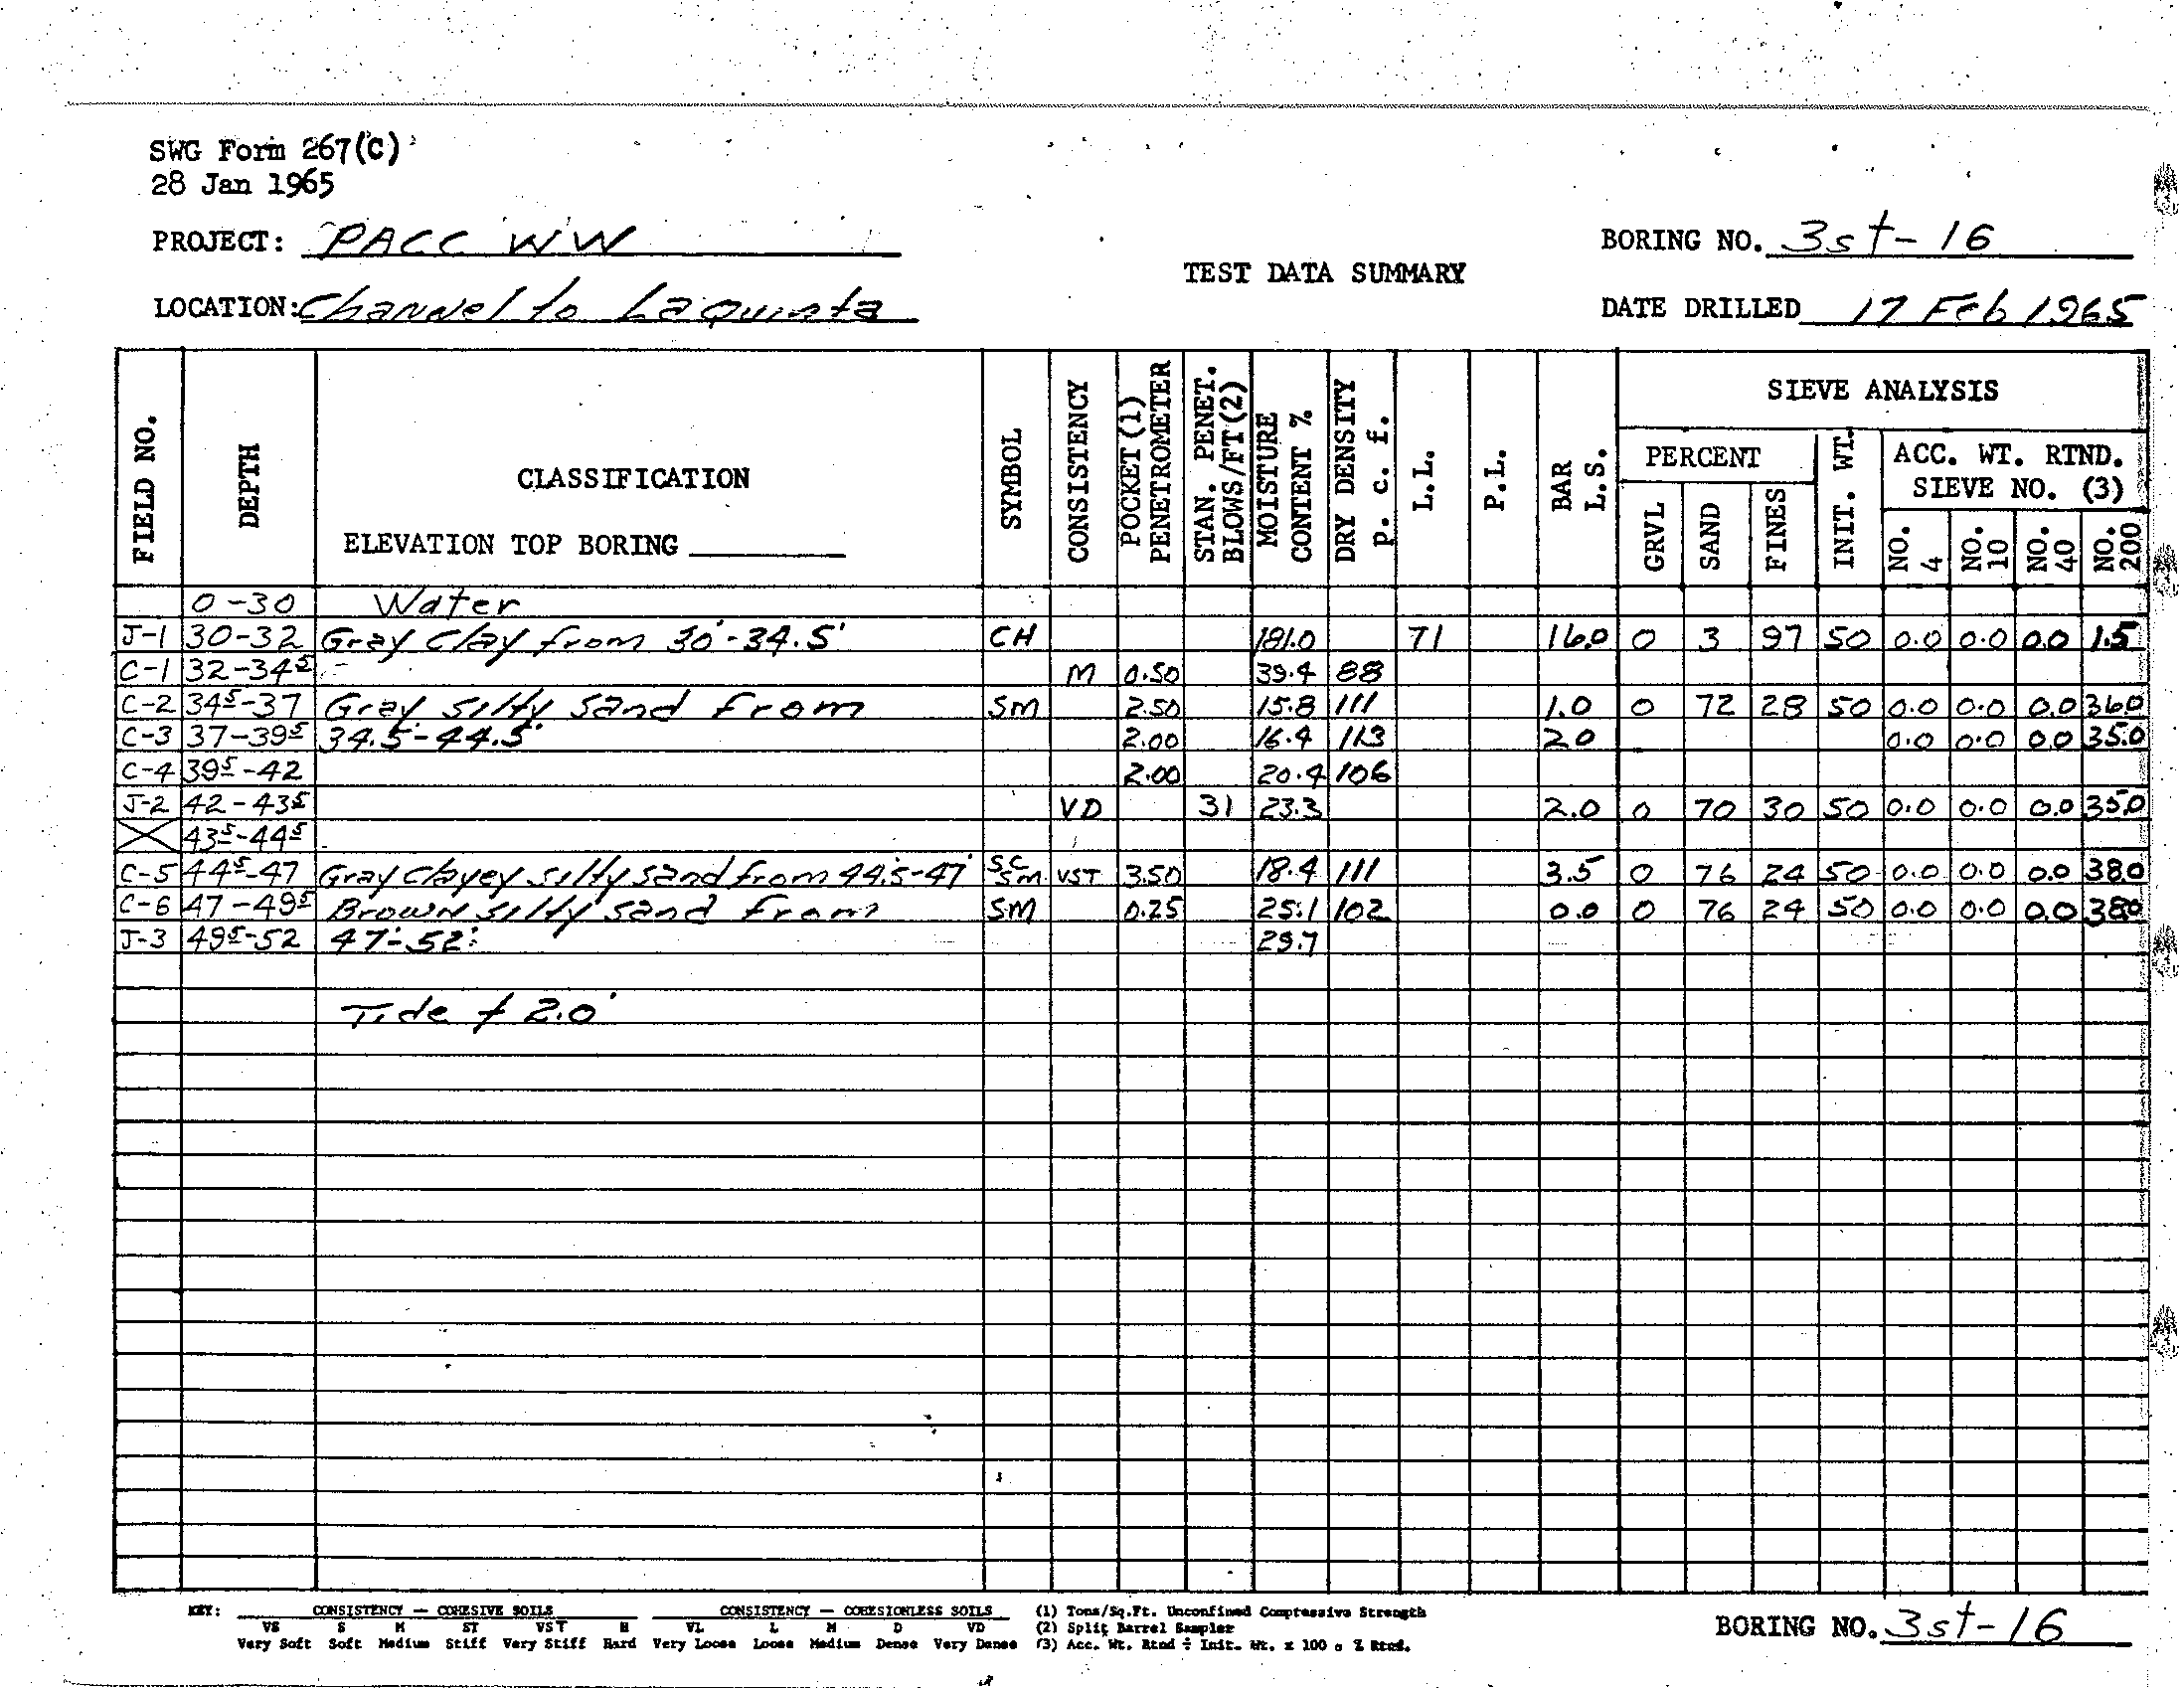 SWG Form 267(C)
28 Jan 1965
PROJECT: PACC WW
BORING NO. 3st-16
TEST DATA SUMMARY
LOCATION: Channel to Laquinta
DATE DRILLED 17 Feb 1965
FIELD NO. DEPTH CLASSIFICATION ELEVATION TOP BORING SYMBOL CONSISTENCY POCKET (1) PENETROMETER STAN. PENET. BLOWS/FT(2) MOISTURE CONTENT % DRY DENSITY p. c. f. L.L. P.L. BAR L.S. SIEVE ANALYSIS
PERCENT GRVL SAND FINES INIT. WT. ACC. WT. RTND. SIEVE NO. (3) NO. 4 NO. 10 NO. 40 NO. 200
0-30 Water
J-1 30-32 Gray clay from 30'-34.5' CH 181.0 71 16.0 0 3 97 50 0.0 0.0 0.0 1.5
C-1 32-34⁵ M 0.50 39.4 88
C-2 34⁵-37 Gray silty sand from SM 2.50 15.8 111 1.0 0 72 28 50 0.0 0.0 0.0 36.0
C-3 37-39⁵ 34.5-44.5' 2.00 16.4 113 2.0 0.0 0.0 0.0 35.0
C-4 39⁵-42 2.00 20.4 106
J-2 42-43⁵ VD 31 23.3 2.0 0 70 30 50 0.0 0.0 0.0 35.0
43⁵-44⁵
C-5 44⁵-47 Gray clayey silty sand from 44.5-47' SC SM VST 3.50 18.4 111 3.5 0 76 24 50 0.0 0.0 0.0 38.0
C-6 47-49⁵ Brown silty sand from SM 0.25 25.1 102 0.0 0 76 24 50 0.0 0.0 0.0 38.0
J-3 49⁵-52 47'-52' 29.7
Tide + 2.0'
KEY: CONSISTENCY — COHESIVE SOILS CONSISTENCY — COHESIONLESS SOILS (1) Tons/Sq.Ft. Unconfined Compressive Strength
VS S M ST VST H VL L M D VD (2) Split Barrel Sampler
Very Soft Soft Medium Stiff Very Stiff Hard Very Loose Loose Medium Dense Very Dense (3) Acc. Wt. Rtnd ÷ Init. Wt. x 100 = % Rtnd.
BORING NO. 3st-16